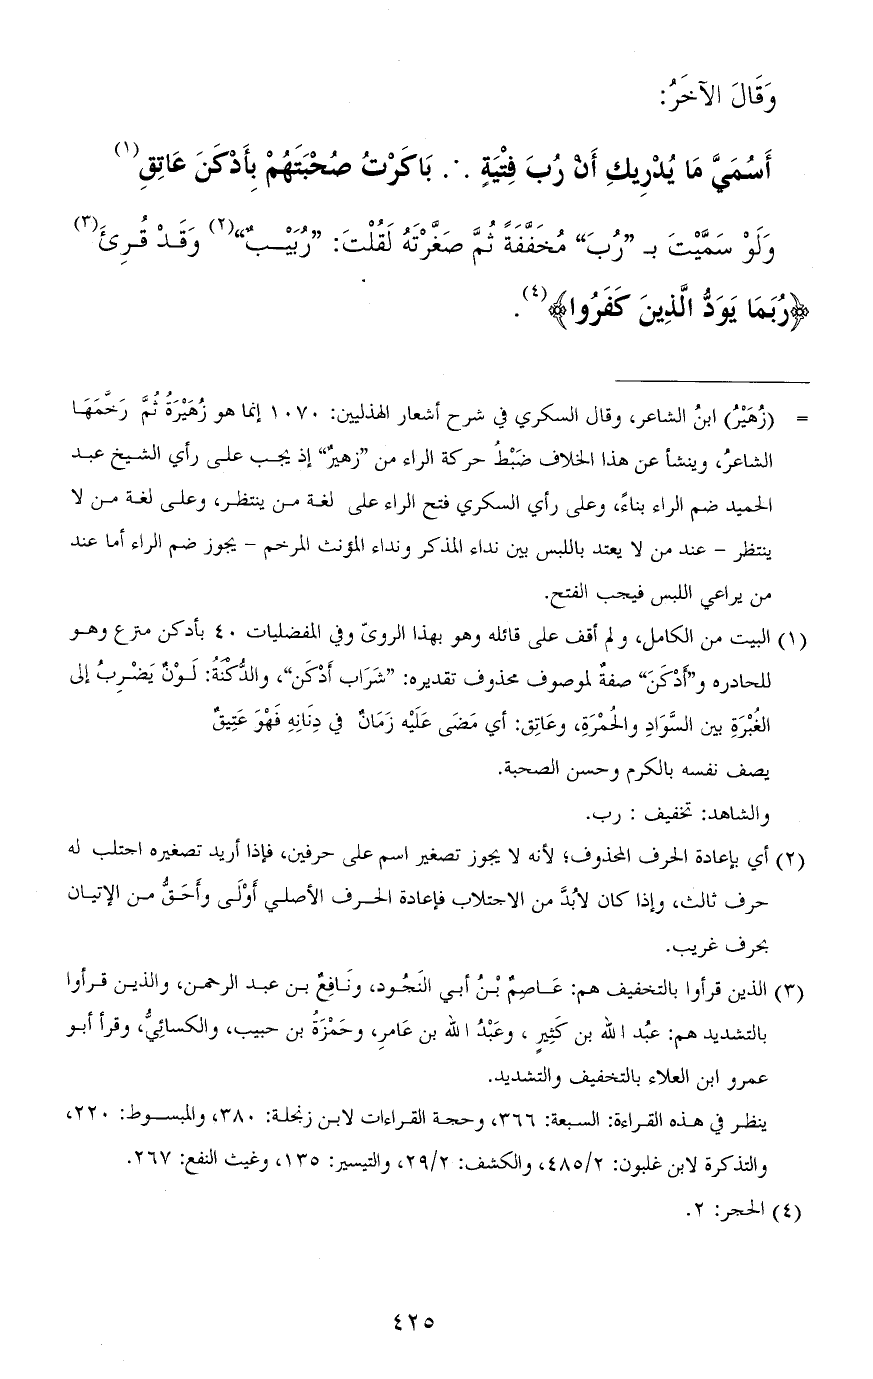 وَقَالَ الآخَرُ:
أَسُمَيَّ مَا يُدْرِيكِ أَنْ رُبَ فِتْيَةٍ ∴ بَاكَرْتُ صُحْبَتَهُمْ بِأَدْكَنَ عَاتِقِ(١)
وَلَوْ سَمَّيْتَ بـ ”رُبَ“ مُخَفَّفَةً ثُمَّ صَغَّرْتَهُ لَقُلْتَ: ”رُبَيْـبٌ“(٢) وَقَدْ قُرِئَ(٣)
﴿رُبَمَا يَوَدُّ الَّذِينَ كَفَرُوا﴾(٤).
= (زُهَيْرُ) ابنُ الشاعر، وقال السكري في شرح أشعار الهذليين: ١٠٧٠ إنما هو زُهَيْرَةُ ثُمَّ رَخَّمَهَا
الشاعرُ، وينشأ عن هذا الخلاف ضَبْطُ حركة الراء من ”زهيرُ“ إذ يجب على رأي الشيخ عبد
الحميد ضم الراء بناءً، وعلى رأي السكري فتح الراء على لغة من ينتظر، وعلى لغة من لا
ينتظر – عند من لا يعتد باللبس بين نداء المذكر ونداء المؤنث المرخم – يجوز ضم الراء أما عند
من يراعي اللبس فيجب الفتح.
(١) البيت من الكامل، ولم أقف على قائله وهو بهذا الروىّ وفي المفضليات ٤٠ بأدكن مترع وهو
للحادره و”أَدْكَنَ“ صفةٌ لموصوف محذوف تقديره: ”شَرَاب أَدْكَن“، والدُّكْنَةُ: لَـوْنٌ يَضْرِبُ إلى
الغُبْرَةِ بين السَّوَادِ والحُمْرَةِ، وعَاتِق: أي مَضَى عَلَيْه زَمَانٌ في دِنَانِهِ فَهْوَ عَتِيقٌ
يصف نفسه بالكرم وحسن الصحبة.
والشاهد: تخفيف : رب.
(٢) أي بإعادة الحرف المحذوف؛ لأنه لا يجوز تصغير اسم على حرفين، فإذا أريد تصغيره اجتلب له
حرف ثالث، وإذا كان لابُدَّ من الاجتلاب فإعادة الحـرف الأصلـي أَوْلَى وأَحَقُّ مـن الإتيـان
بحرف غريب.
(٣) الذين قرأوا بالتخفيف هم: عَـاصِمٌ بْـنُ أبـي النَجُود، ونَـافِعٌ بـن عبد الرحمن، والذيـن قـرأوا
بالتشديد هم: عبْد الله بن كَثِيرٍ ، وعَبْدُ الله بن عَامرِ، وحَمْزَةُ بن حبيب، والكسائِيُّ، وقرأ أبـو
عمرو ابن العلاء بالتخفيف والتشديد.
ينظـر في هـذه القراءة: السبعة: ٣٦٦، وحجة القراءات لابن زنجلة: ٣٨٠، والمبسـوط: ٢٢٠،
والتذكرة لابن غلبون: ٤٨٥/٢، والكشف: ٢٩/٢، والتيسير: ١٣٥، وغيث النفع: ٢٦٧.
(٤) الحجر: ٢.
٤٢٥